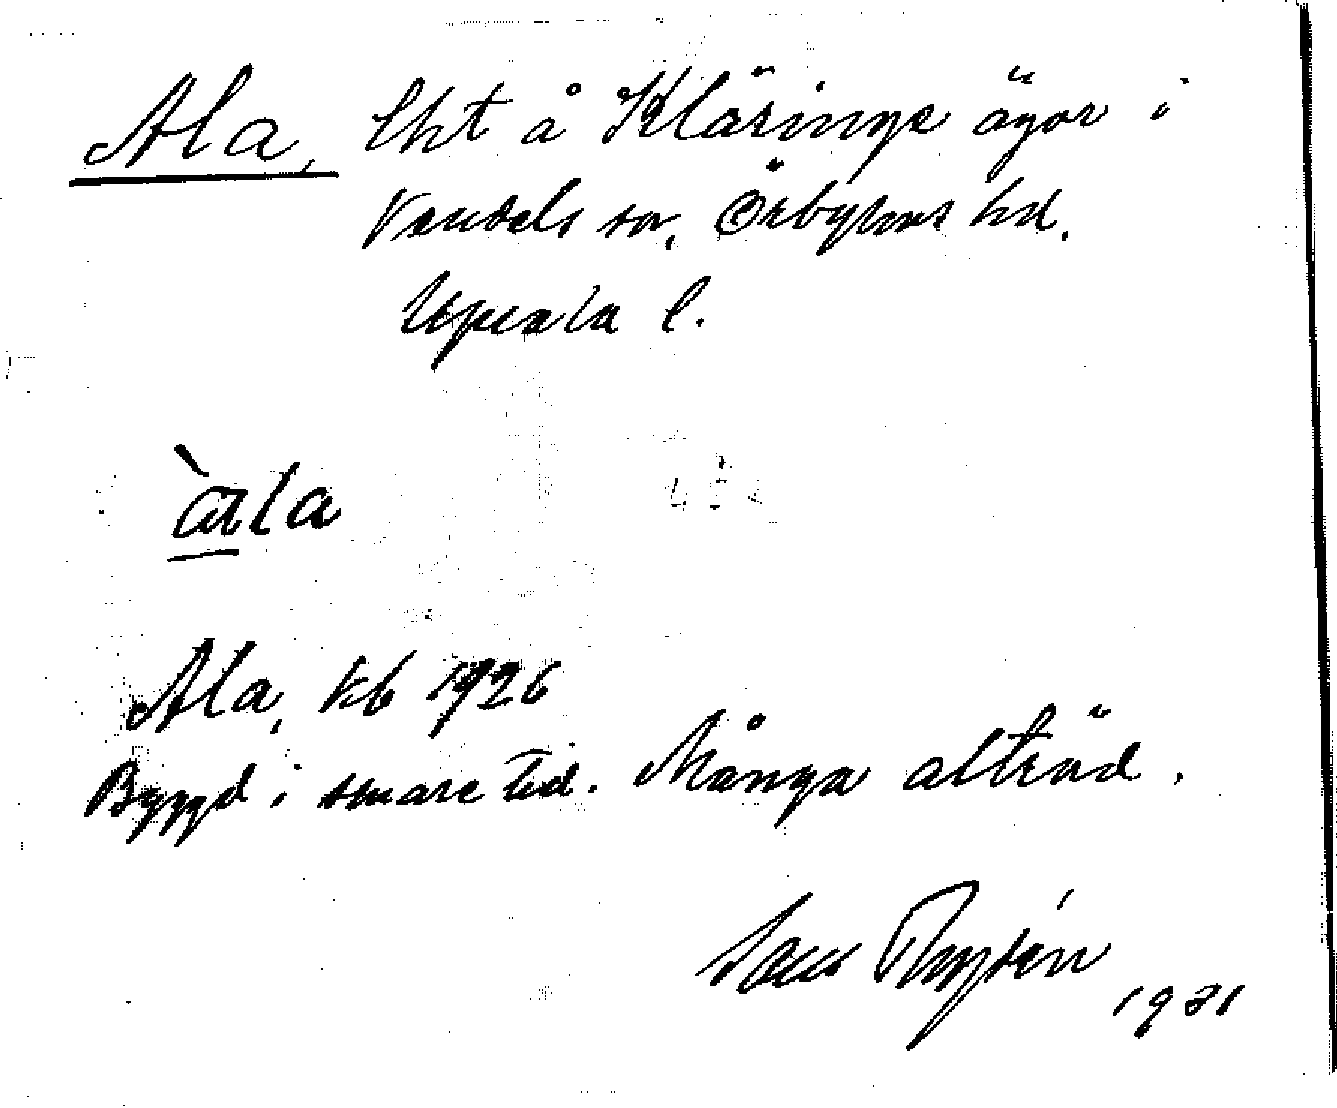 Ala, lht å Kläringe ägor i
Vendels sn, Örbyhus hd.
Uppsala l.
àrla
Ala, kb 1926
Byggd i senare tid. Många alträd.
1931